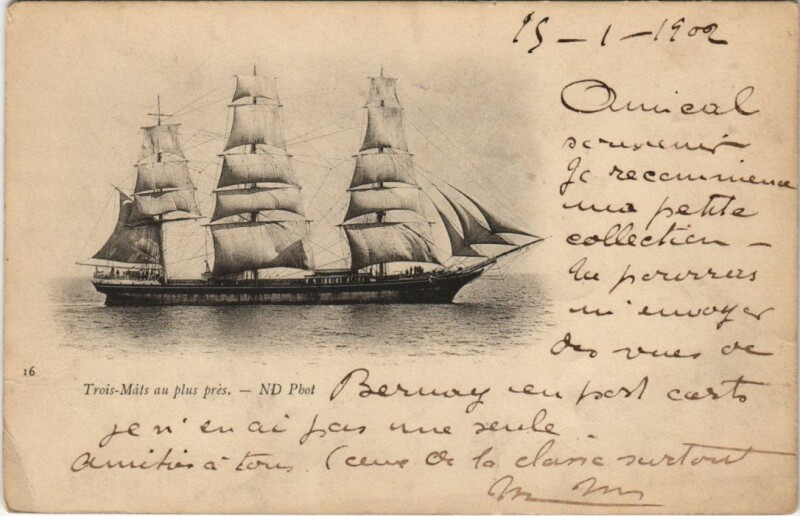 15-1-1902
Amical
souvenir
Je recommence
ma petite
collection -
tu pourras
m'envoyer
des vues de
16
Trois-Mâts au plus près. — ND Phot
Bernay en post carts
je n'en ai pas une seule.
Amitiés à tous. (ceux de la classe surtout